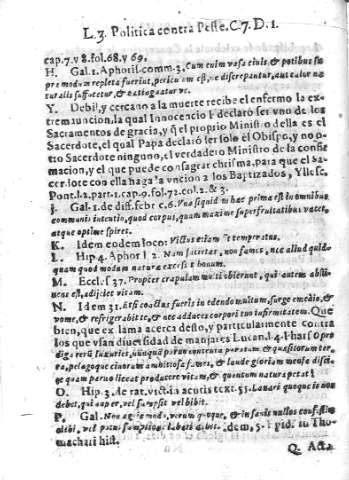 L. 3. Politica contra Peste. C. 7. D. 1.
cap. 7. v 8. fol. 68. y 69.
H. Gal. 1. Aphoris. comm. 3. Cum enim vasa eius, & potibus su
pra modum repleta fuerint, periculum est, ne disrumpantur, aut calor na
turalis suffocetur, & extinguatur
Y. Debil, y cercano a la muerte recibe el enfermo la ex
tremauncion, la qual Innocencio I declarò ser vno de los
Sacramentos de gracia, y q̃ el proprio Ministro della es el
Sacerdote, el qual Papa declarò ser solo el Obispo, y no o
tro Sacerdote ninguno, el verdadero Ministro de la confir
macion, y el que puede consagrar chrisma, para que el Sa
cerdote con ella haga la vncion a los Baptizados, Yllesc.
Pont. l. 2. part. 1. cap. 9. fol. 72. col. 2. & 3.
J. Gal. 1. de diff. febr c. 6. Vna siquidem hæc prima est in omnibus
communis intentio, quod corpus, quam maxime superfluitatibus vacet,
atque optime spiret.
K. Idem eodem loco: Victus etiam temperatus.
L. Hip. 4. Aphor. 1 2. Nam satietas, non fames, nec aliud quid
quam quod modum naturæ excesit bonum.
M. Eccl. s 37. Propter crapulam multi obierunt, qui autem absti
nens est, adijciet vitam.
N. Idem 31. Et si coactus fueris in edendo multum, surge e medio, &
vome, & refrigerabit te, & nec adduces corpori tuo infirmitatem. Que
bien, que exclama acerca desto, y particularmente contra
los que vsan diuersidad de manjares Lucan. l. 4. Phars. O pro
diga rerum luxuries, nunquam paruo contenta paratu, & quæsitorum ter
ra, pelagoque ciuorum ambitiosa fames, & laude gloriam mensæ disci
te quam paruo liceat producere vitam, & quantum natura petat!
O. Hip. 3. de rat. vict. in acutis text. 55. Lauari quoque is non
debet, qui nuper, vel sumpsit vel bibit.
P. Gal. Non ægro modo, verum quoque, & in sanis nullos confestim
a cibi, vel potus sumptione lauari debet. Idem, 5. Epid. in Tho
machari hist.
Q. Act. 2